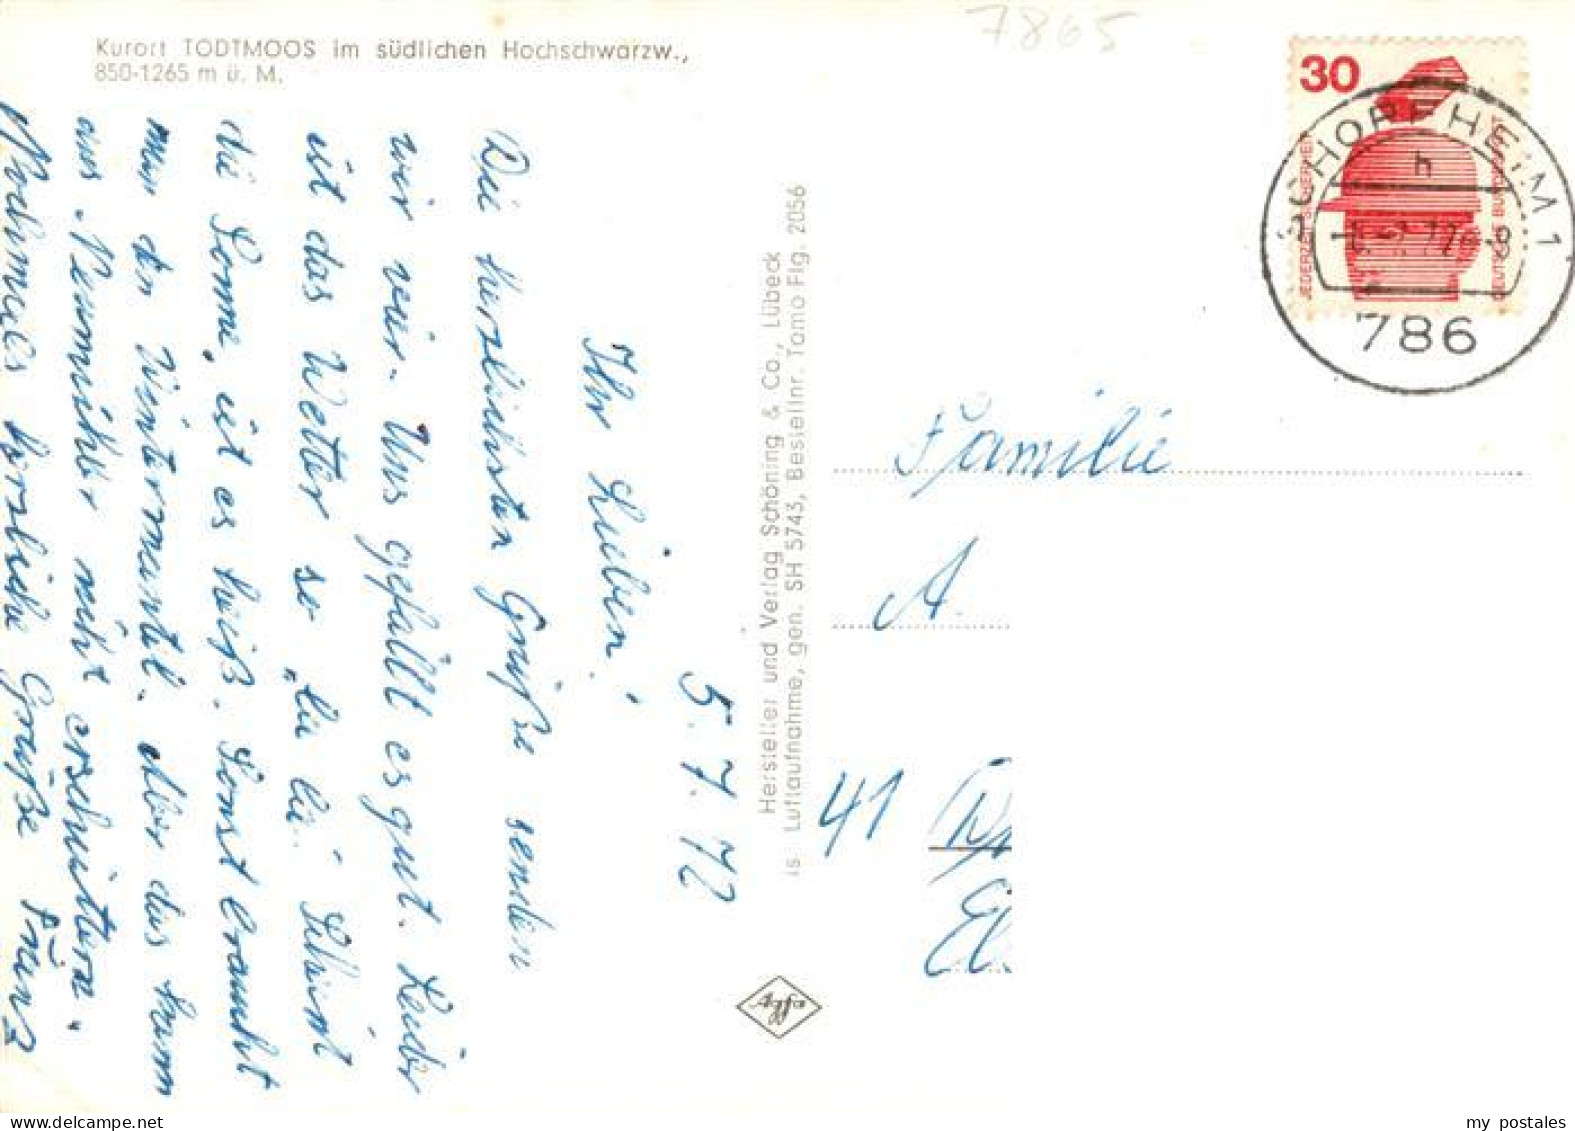 7865
Kurort TODTMOOS im südlichen Hochschwarzw.,
850-1265 m ü. M.
5. 7. 72
Ihr Lieben!
Die herzlichsten Grüße senden
wir euch. Uns gefällt es gut. Leider
ist das Wetter so "la la". Scheint
die Sonne, ist es heiß. Sonst braucht
man den Wintermantel. Aber das kann
uns nicht erschüttern.
Nochmals herzliche Grüße
Hersteller und Verlag Schöning & Co., Lübeck
is Luftaufnahme, gen. SH 5743, Bestellnr. Tamo Flg. 2056
30
JEDERZEIT SICHERHEIT
DEUTSCHE BUNDESPOST
SCHOPFHEIM 1
h
786
Familie
A.
41
my postales